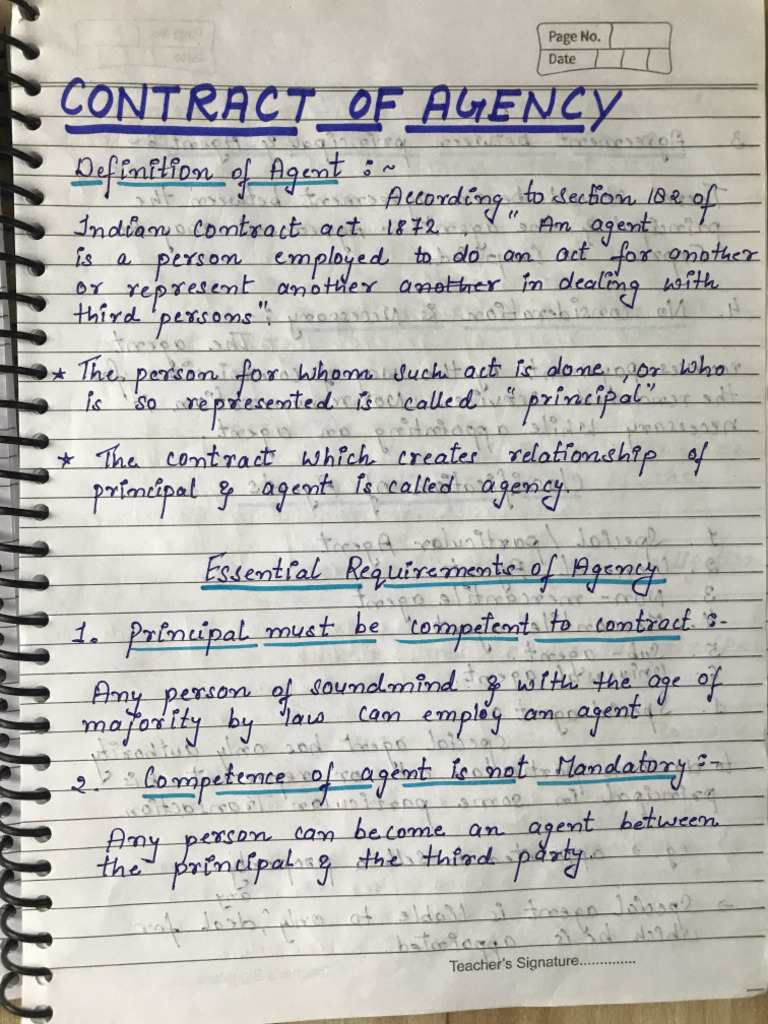 Page No.
Date
CONTRACT OF AGENCY
Definition of Agent :~
According to section 182 of
Indian contract act 1872, " An agent
is a person employed to do an act for another
or represent another another in dealing with
third persons".
* The person for whom such act is done, or who
is so represented is called "principal"
* The contract which creates relationship of
principal & agent is called agency.
Essential Requirements of Agency
1. Principal must be competent to contract :-
Any person of soundmind & with the age of
majority by law can employ an agent
2. Competence of agent is not Mandatory :-
Any person can become an agent between
the principal & the third party.
Teacher's Signature..............